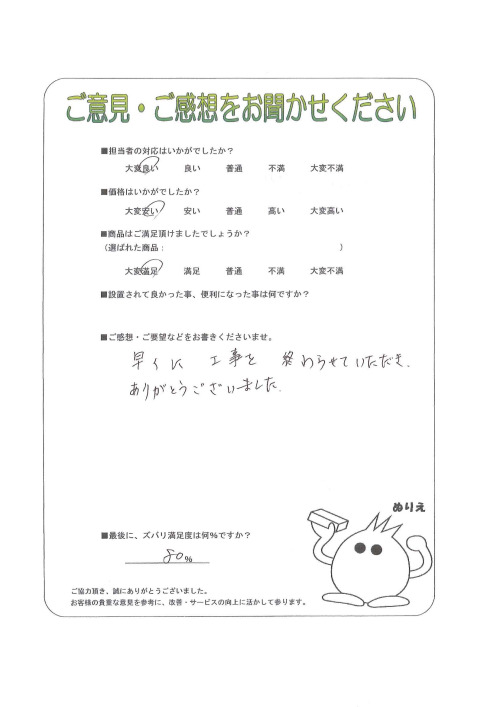 ご意見・ご感想をお聞かせください
■担当者の対応はいかがでしたか？
大変良い 良い 普通 不満 大変不満
■価格はいかがでしたか？
大変安い 安い 普通 高い 大変高い
■商品はご満足頂けましたでしょうか？
（選ばれた商品： ）
大変満足 満足 普通 不満 大変不満
■設置されて良かった事、便利になった事は何ですか？
■ご感想・ご要望などをお書きくださいませ。
早くに 工事を 終わらせていただき、
ありがとうございました。
ぬりえ
■最後に、ズバリ満足度は何％ですか？
80%
ご協力頂き、誠にありがとうございました。
お客様の貴重な意見を参考に、改善・サービスの向上に活かして参ります。